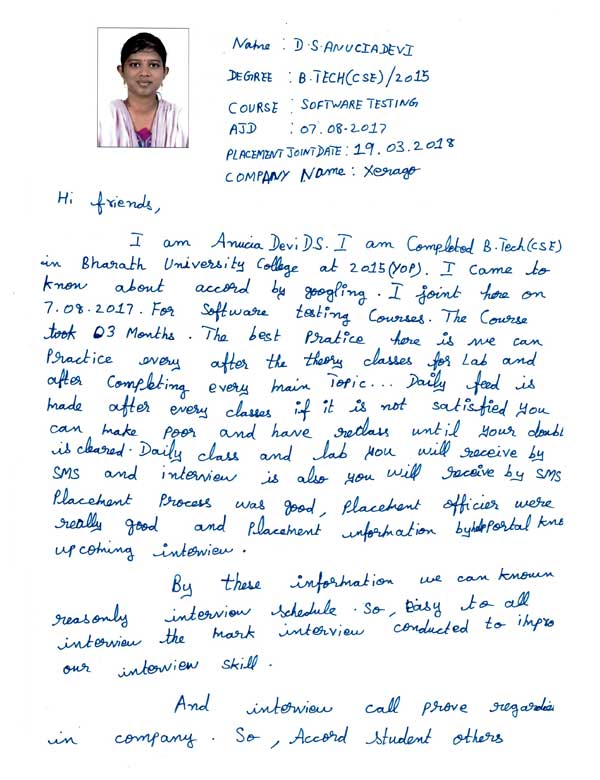 Name : D.S.ANUCIADEVI
DEGREE : B.TECH(CSE)/2015
COURSE : SOFTWARE TESTING
AJD : 07.08.2017
PLACEMENT JOINT DATE : 19.03.2018
COMPANY Name : Xerago
Hi friends,
I am Anucia Devi D.S. I am Completed B.Tech(CSE)
in Bharath University College at 2015(YOP). I Came to
know about accord by googling. I joint here on
7.08.2017. For Software testing Courses. The Course
took 03 Months. The best Pratice here is we can
Practice every after the theory classes for Lab and
after Completing every main Topic... Daily feed is
made after every classes if it is not satisfied you
can make poor and have reclass until your doubt
is cleared. Daily class and lab you will receive by
SMS and interview is also you will receive by SMS
Placement Process was good, Placement officier were
really good and Placement information by portal kno
upcoming interview.
By these information we can known
reasonly interview schedule. So, Easy to all
interview the mark interview conducted to impro
our interview skill.
And interview call prove regardin
in company. So, Accord Student others